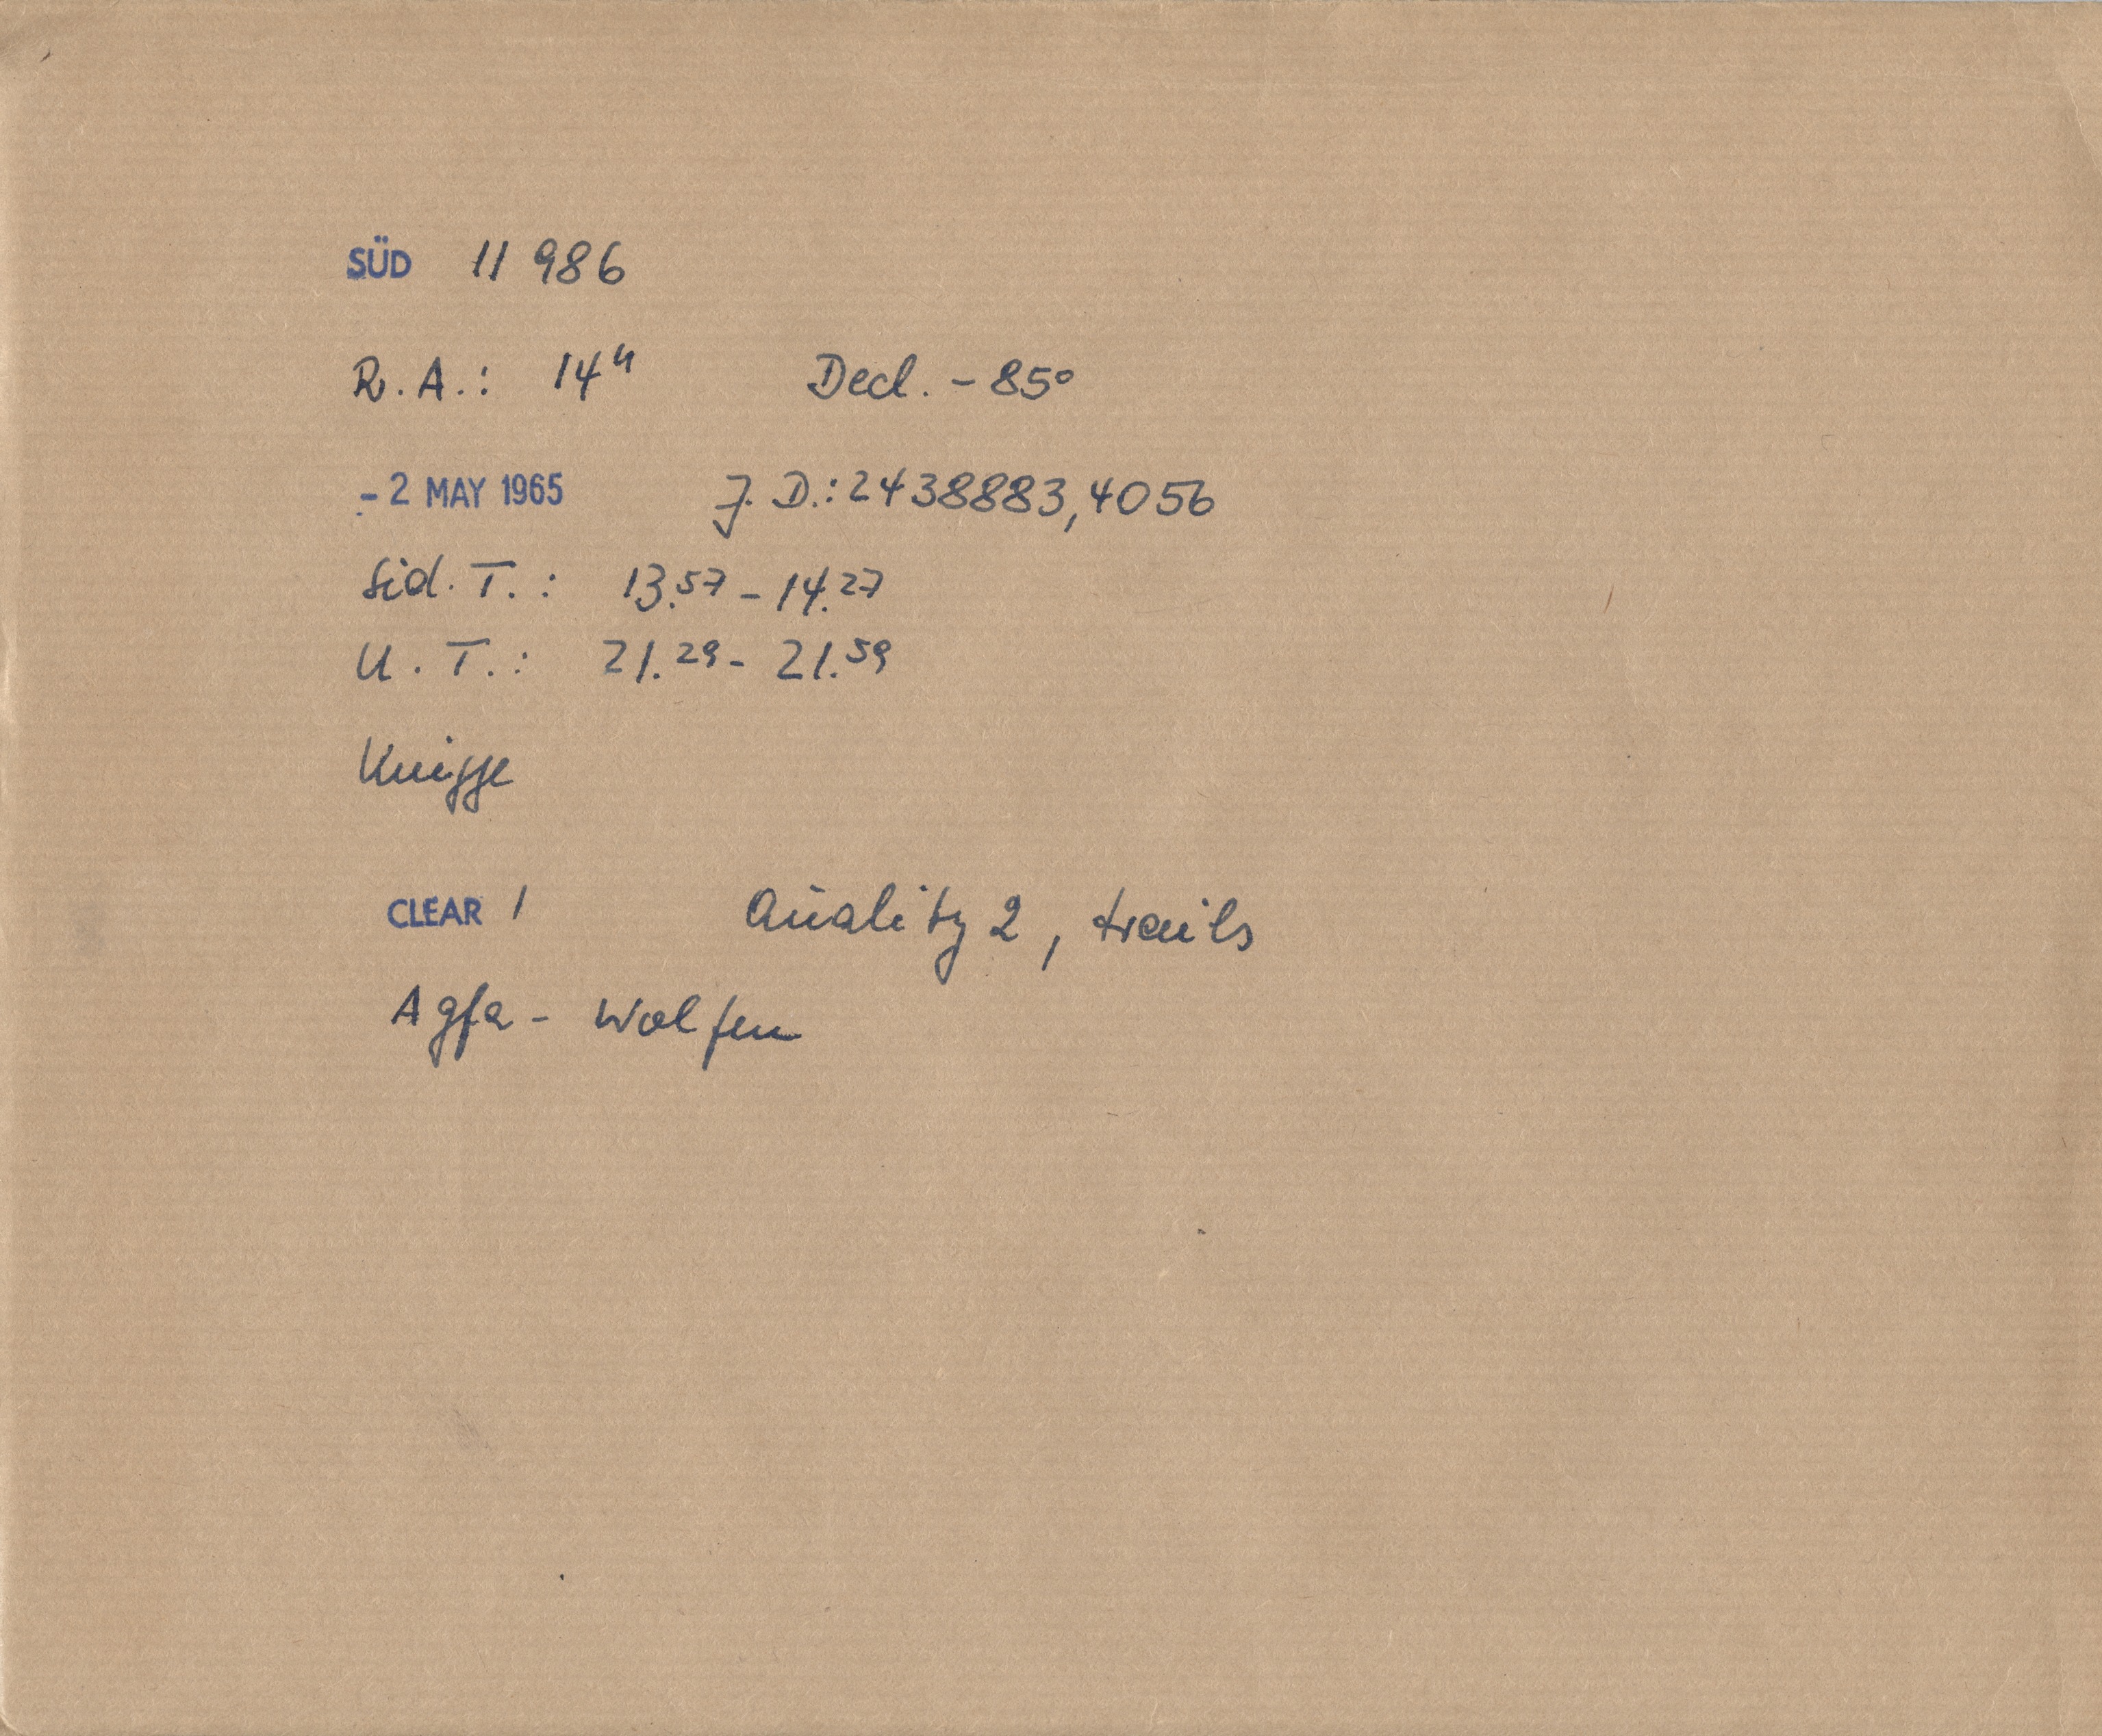 SÜD 11 986
R.A.: 14h Decl. - 85°
- 2 MAY 1965 J.D.: 2438883,4056
Sid. T.: 13.57 - 14.27
U.T.: 21.29 - 21.59
Knigge
CLEAR 1 Quality 2, trails
Agfa - Wolfen